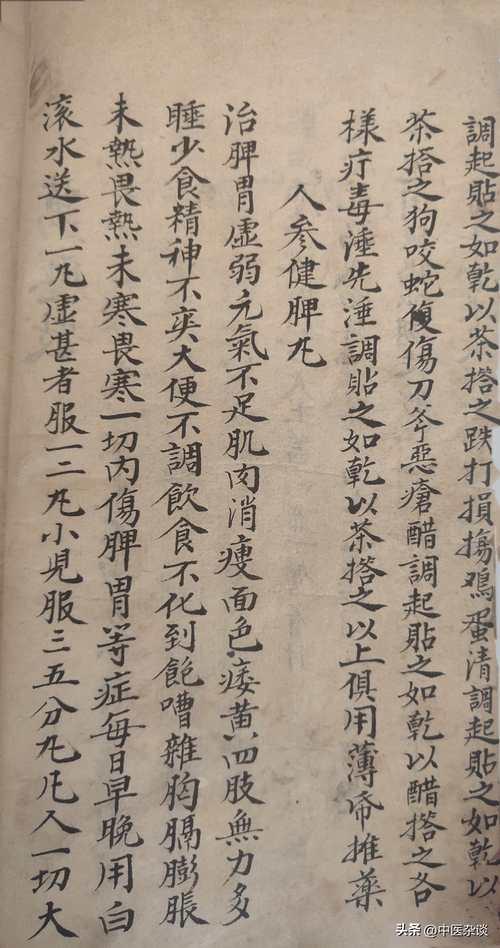 調起貼之如乾以茶搭之跌打損傷鳮蛋清調起貼之如乾以
茶搭之狗咬蛇傻傷刀斧惡瘡醋調起貼之如乾以醋搭之各
樣疔毒湩先湩調貼之如乾以茶搭之以上俱用薄帋摊藥
人參健脾丸
治脾胃虛弱元氣不足肌肉消瘦面色痿黃四肢無力多
睡少食精神不爽大便不調飲食不化到飽嘈雜胸膈膨脹
未熱畏熱未寒畏寒一切內傷脾胃等症每日早晚用白
滚水送下一丸虛甚者服一二丸小児服三五分丸凡人一切大
头条@中医杂谈